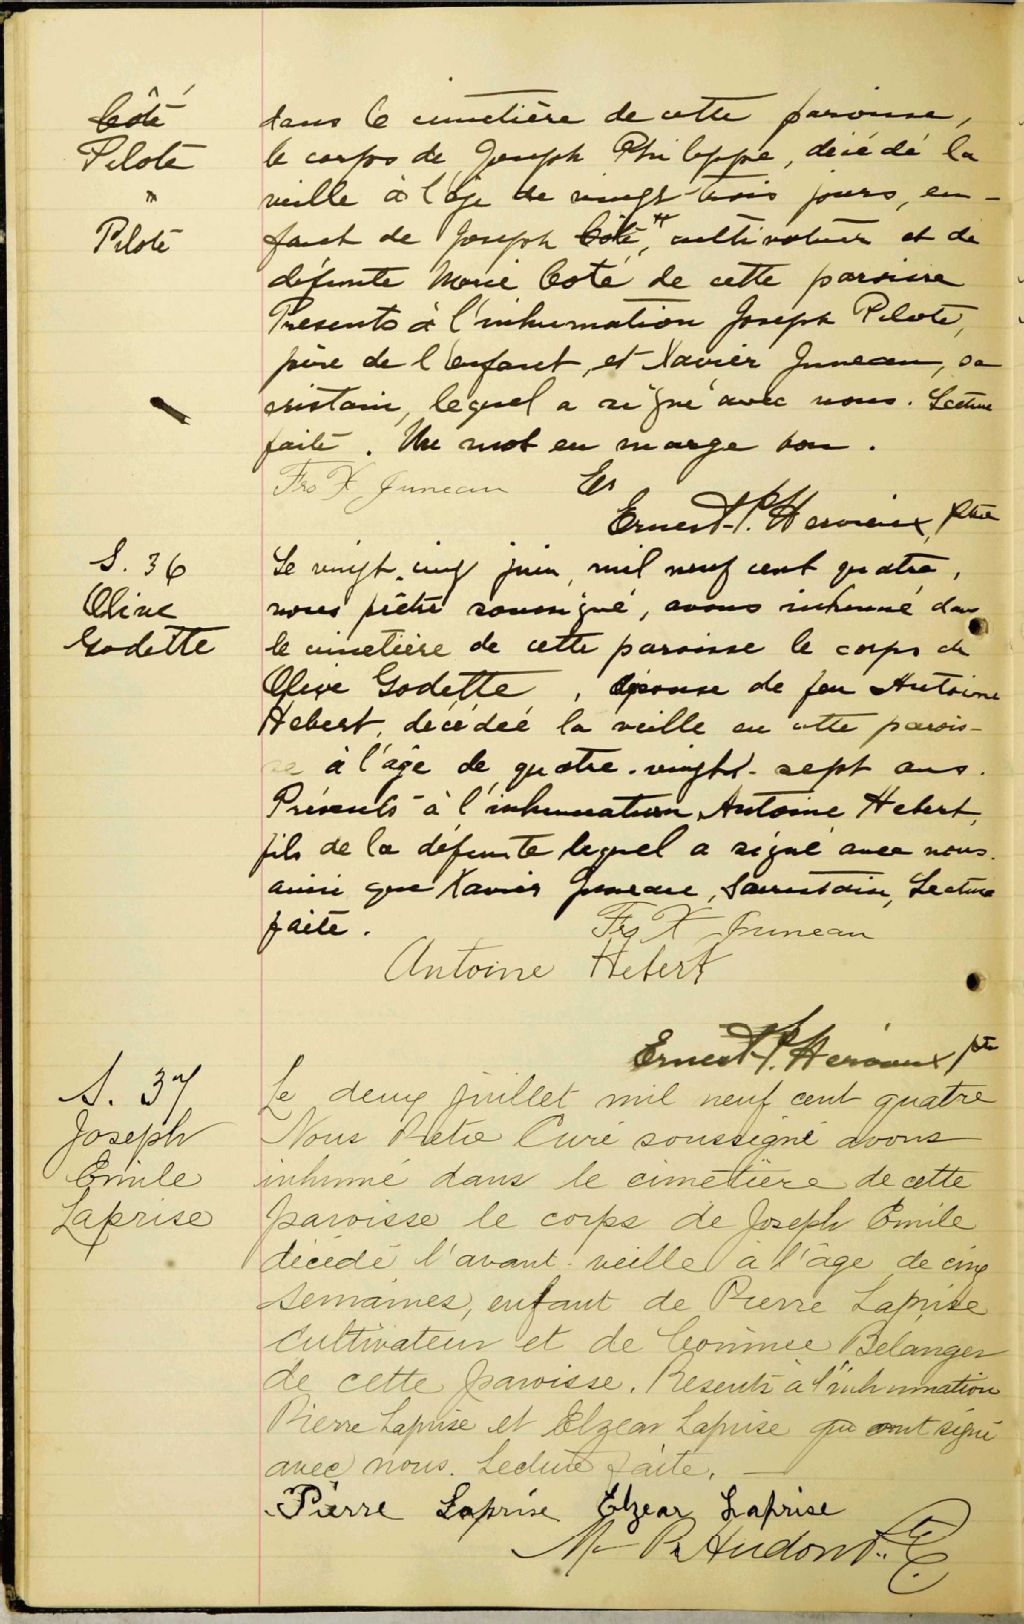 Côté
Pilote
"
Pilote
dans le cimetière de cette paroisse,
le corps de Joseph Philippe, décédé la
veille à l'âge de vingt-trois jours, en-
fant de Joseph Côté, cultivateur et de
défunte Marie Coté de cette paroisse
Présents à l'inhumation Joseph Pilote,
père de l'enfant, et Xavier Juneau, sa
cristain, lequel a signé avec nous. Lecture
faite. Un mot en marge bon.
Frs X Juneau
Ernest P. Hervieux, ptre
S. 36
Olive
Godette
Le vingt-cinq juin, mil neuf cent quatre,
nous prêtre soussigné, avons inhumé dans
le cimetière de cette paroisse le corps de
Olive Godette, épouse de feu Antoine
Hebert, décédée la veille en cette parois-
se à l'âge de quatre-vingt-sept ans.
Présents à l'inhumation Antoine Hebert,
fils de la défunte lequel a signé avec nous
ainsi que Xavier Juneau, Sacristain, Lecture
faite.
Frs X Juneau
Antoine Hebert
Ernest P. Hervieux ptre
S. 37
Joseph
Emile
Laprise
Le deux juillet mil neuf cent quatre
Nous Pretre Curé soussigné avons
inhumé dans le cimetière de cette
paroisse le corps de Joseph Emile
décédé l'avant-veille à l'âge de cinq
semaines, enfant de Pierre Laprise
Cultivateur et de Belanger
de cette paroisse. Presents à l'inhumation
Pierre Laprise et Elzear Laprise qui ont signé
avec nous. Lecture faite.
Pierre Laprise Elzear Laprise
Hudon